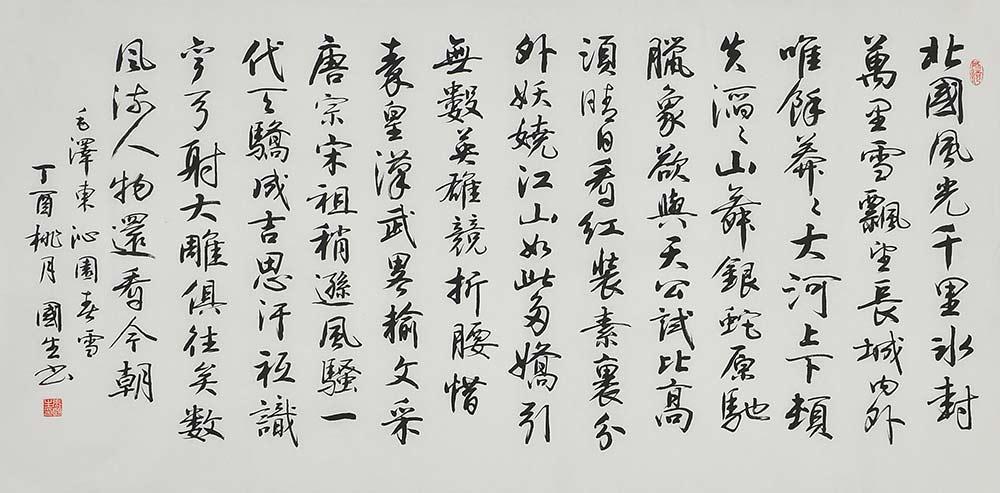 北國風光千里冰封
萬里雪飄望長城內外
唯餘莽〻大河上下頓
失滔〻山舞銀蛇原馳
臘象欲與天公試比高
須晴日看紅裝素裹分
外妖嬈江山如此多嬌引
無數英雄競折腰惜
秦皇漢武略輸文采
唐宗宋祖稍遜風騷一
代天驕成吉思汗祇識
彎弓射大雕俱往矣數
風流人物還看今朝
毛澤東沁園春雪
丁酉桃月國生书